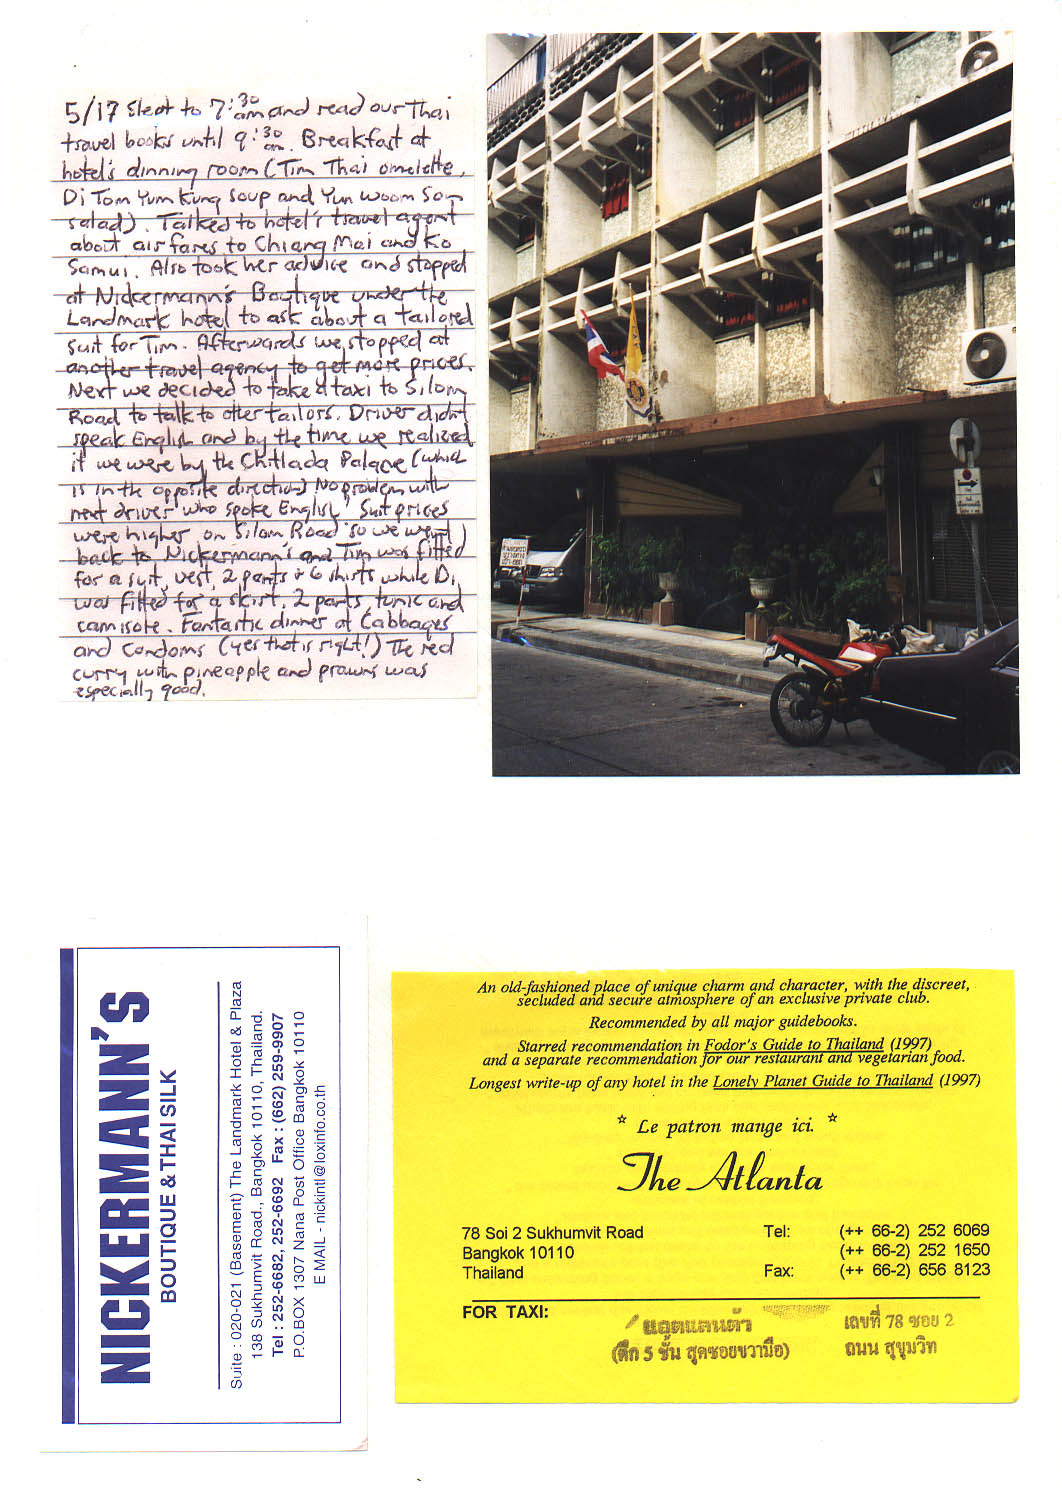 5/17 Slept to 7:30 am and read our Thai
travel books until 9:30 am. Breakfast at
hotel's dinning room (Tim Thai omelette,
Di Tom Yum Kung soup and Yun Woom Sen
salad). Talked to hotel's travel agent
about air fares to Chiang Mai and Ko
Samui. Also took her advice and stopped
at Nickermann's Boutique under the
Landmark hotel to ask about a tailored
suit for Tim. Afterwards we stopped at
another travel agency to get more prices.
Next we decided to take a taxi to Silom
Road to talk to other tailors. Driver didn't
speak English and by the time we realized
it we were by the Chitlada Palace (which
is in the opposite direction) No problem with
next driver who spoke English! Suit prices
were higher on Silom Road so we went
back to Nickermann's and Tim was fitted
for a suit, vest, 2 pants & 6 shirts while Di
was fitted for a skirt, 2 pants, tunic and
camisole. Fantastic dinner at Cabbages
and Condoms (yes that is right!) The red
curry with pineapple and prawns was
especially good.
NICKERMANN'S
BOUTIQUE & THAI SILK
Suite : 020-021 (Basement) The Landmark Hotel & Plaza
138 Sukhumvit Road., Bangkok 10110, Thailand.
Tel : 252-6682, 252-6692 Fax : (662) 259-9907
P.O.BOX 1307 Nana Post Office Bangkok 10110
E MAIL - nickintl@loxinfo.co.th
An old-fashioned place of unique charm and character, with the discreet,
secluded and secure atmosphere of an exclusive private club.
Recommended by all major guidebooks.
Starred recommendation in Fodor's Guide to Thailand (1997)
and a separate recommendation for our restaurant and vegetarian food.
Longest write-up of any hotel in the Lonely Planet Guide to Thailand (1997)
* Le patron mange ici. *
The Atlanta
78 Soi 2 Sukhumvit Road Tel: (++ 66-2) 252 6069
Bangkok 10110 (++ 66-2) 252 1650
Thailand Fax: (++ 66-2) 656 8123
FOR TAXI:
แอตแลนต้า เลขที่ 78 ซอย 2
(ตึก 5 ชั้น สุดซอยขวามือ) ถนน สุขุมวิท